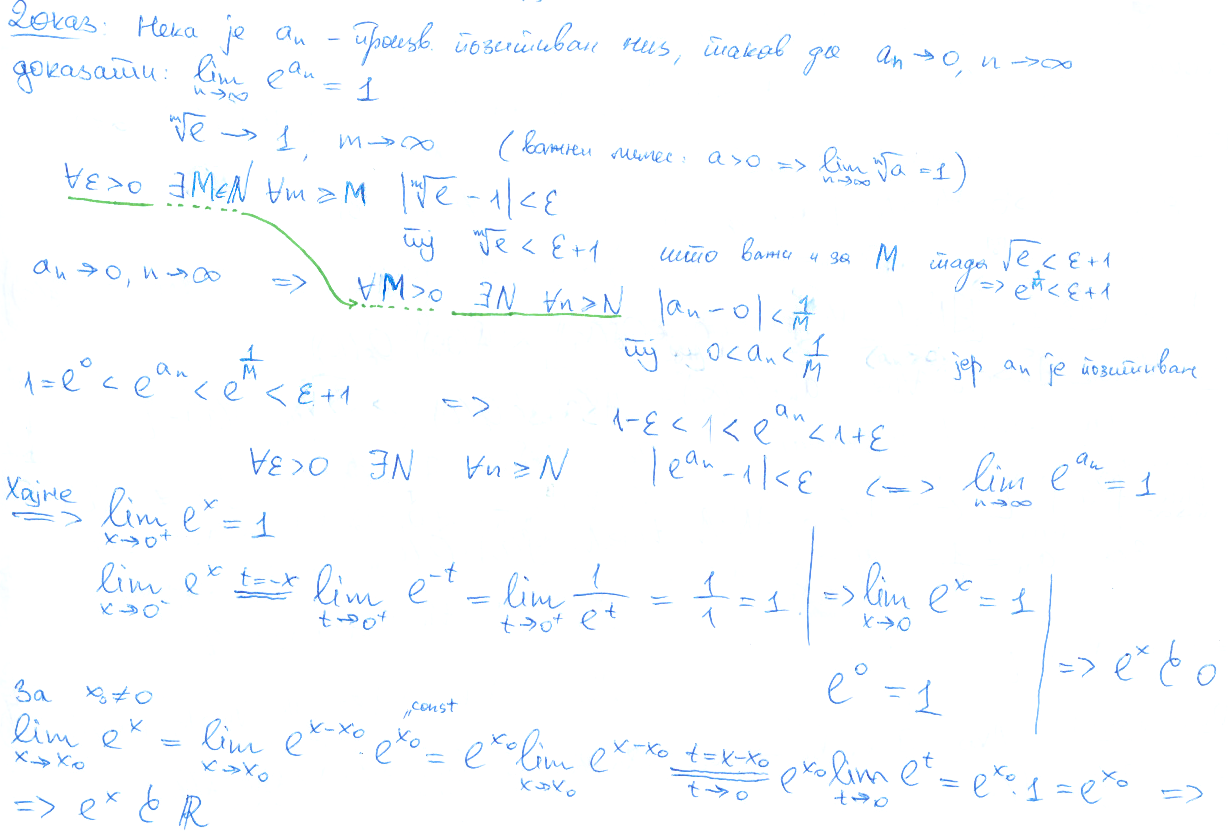 Доказ: Нека је aₙ - произв. позитиван низ, такав да aₙ → 0, n → ∞
доказати: lim_{n→∞} e^{aₙ} = 1
ᵐ√e → 1, m → ∞ (важни лимес: a>0 => lim_{n→∞} ⁿ√a = 1)
∀ε>0 ∃M∈N ∀m ⩾ M |ᵐ√e - 1| < ε
тј ᵐ√e < ε+1 што важи и за M тада √e < ε+1
=> e^{1/M} < ε+1
aₙ → 0, n → ∞ => ∀M>0 ∃N ∀n⩾N |aₙ - 0| < 1/M
тј 0 < aₙ < 1/M јер aₙ је позитиван
1 = e⁰ < e^{aₙ} < e^{1/M} < ε+1 => 1-ε < 1 < e^{aₙ} < 1+ε
∀ε>0 ∃N ∀n ⩾ N |e^{aₙ} - 1| < ε <=> lim_{n→∞} e^{aₙ} = 1
Хајне => lim_{x→0⁺} e^x = 1
lim_{x→0⁻} e^x = (t=-x) lim_{t→0⁺} e^{-t} = lim_{t→0⁺} 1/e^t = 1/1 = 1 | => lim_{x→0} e^x = 1
e⁰ = 1 | => e^x 0
За x₀ ≠ 0
lim_{x→x₀} e^x = lim_{x→x₀} e^{x-x₀} · e^{x₀} „const = e^{x₀} lim_{x→x₀} e^{x-x₀} = (t=x-x₀, t→0) e^{x₀} lim_{t→0} e^t = e^{x₀} · 1 = e^{x₀} =>
=> e^x ℝ